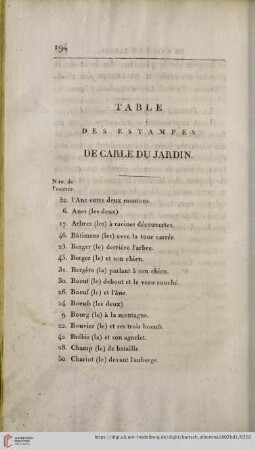 194
TABLE
DES ESTAMPES
DE CARLE DU JARDIN.
Nro. de
l'œuvre.
32. l'Ane entre deux moutons.
6. Anes (les deux)
17. Arbres (les) à racines découvertes.
46. Bâtimens (les) avec la tour carrée.
23. Berger (le) derrière l'arbre.
45. Berger (le) et son chien.
31. Bergère (la) parlant à son chien.
30. Boeuf (le) debout et le veau couché.
26. Boeuf (le) et l'âne.
24. Boeufs (les deux)
9. Bourg (le) à la montagne.
22. Bouvier (le) et ses trois boeufs.
42. Brébis (la) et son agnelet.
28. Champ (le) de bataille.
50. Chariot (le) devant l'auberge.
UNIVERSITÄTS-
BIBLIOTHEK
HEIDELBERG